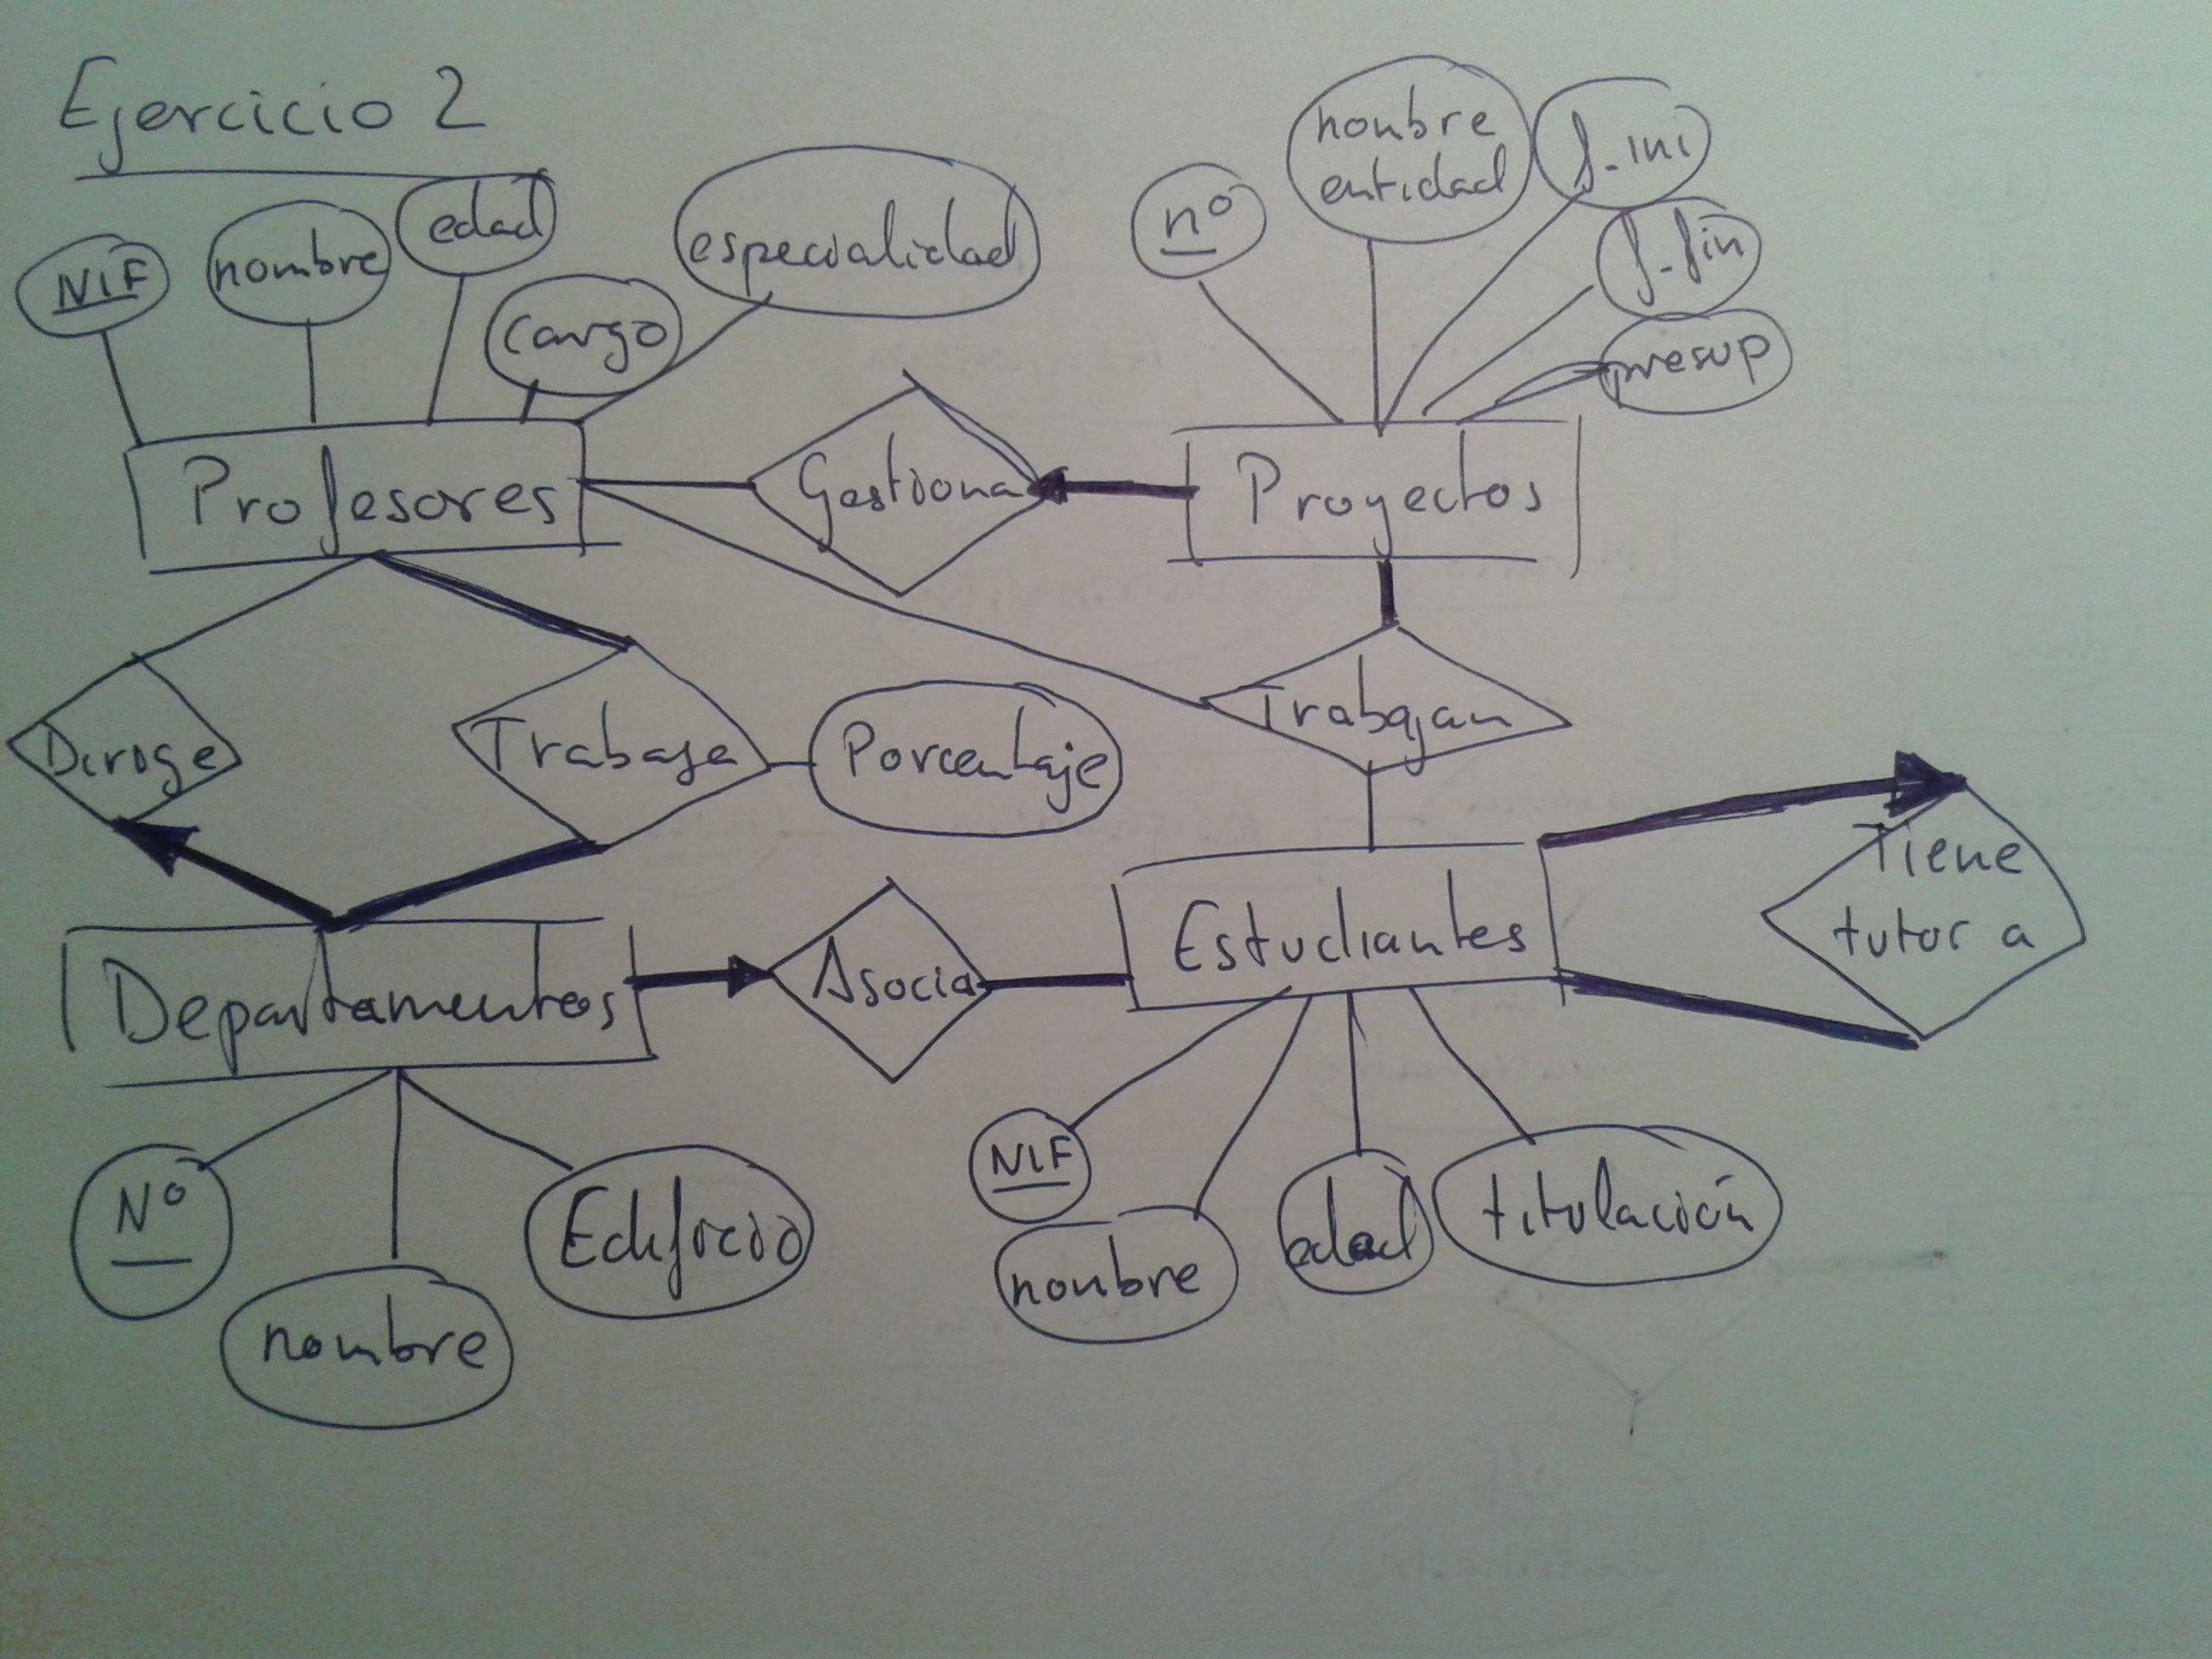 Ejercicio 2
NIF
nombre
edad
cargo
especialidad
nº
nombre
entidad
f-ini
f-fin
presup
Profesores
Gestiona
Proyectos
Dirige
Trabaja
Porcentaje
Trabajan
Tiene
tutor a
Departamentos
Asocia
Estudiantes
Nº
nombre
Edificio
NIF
nombre
edad
titulación